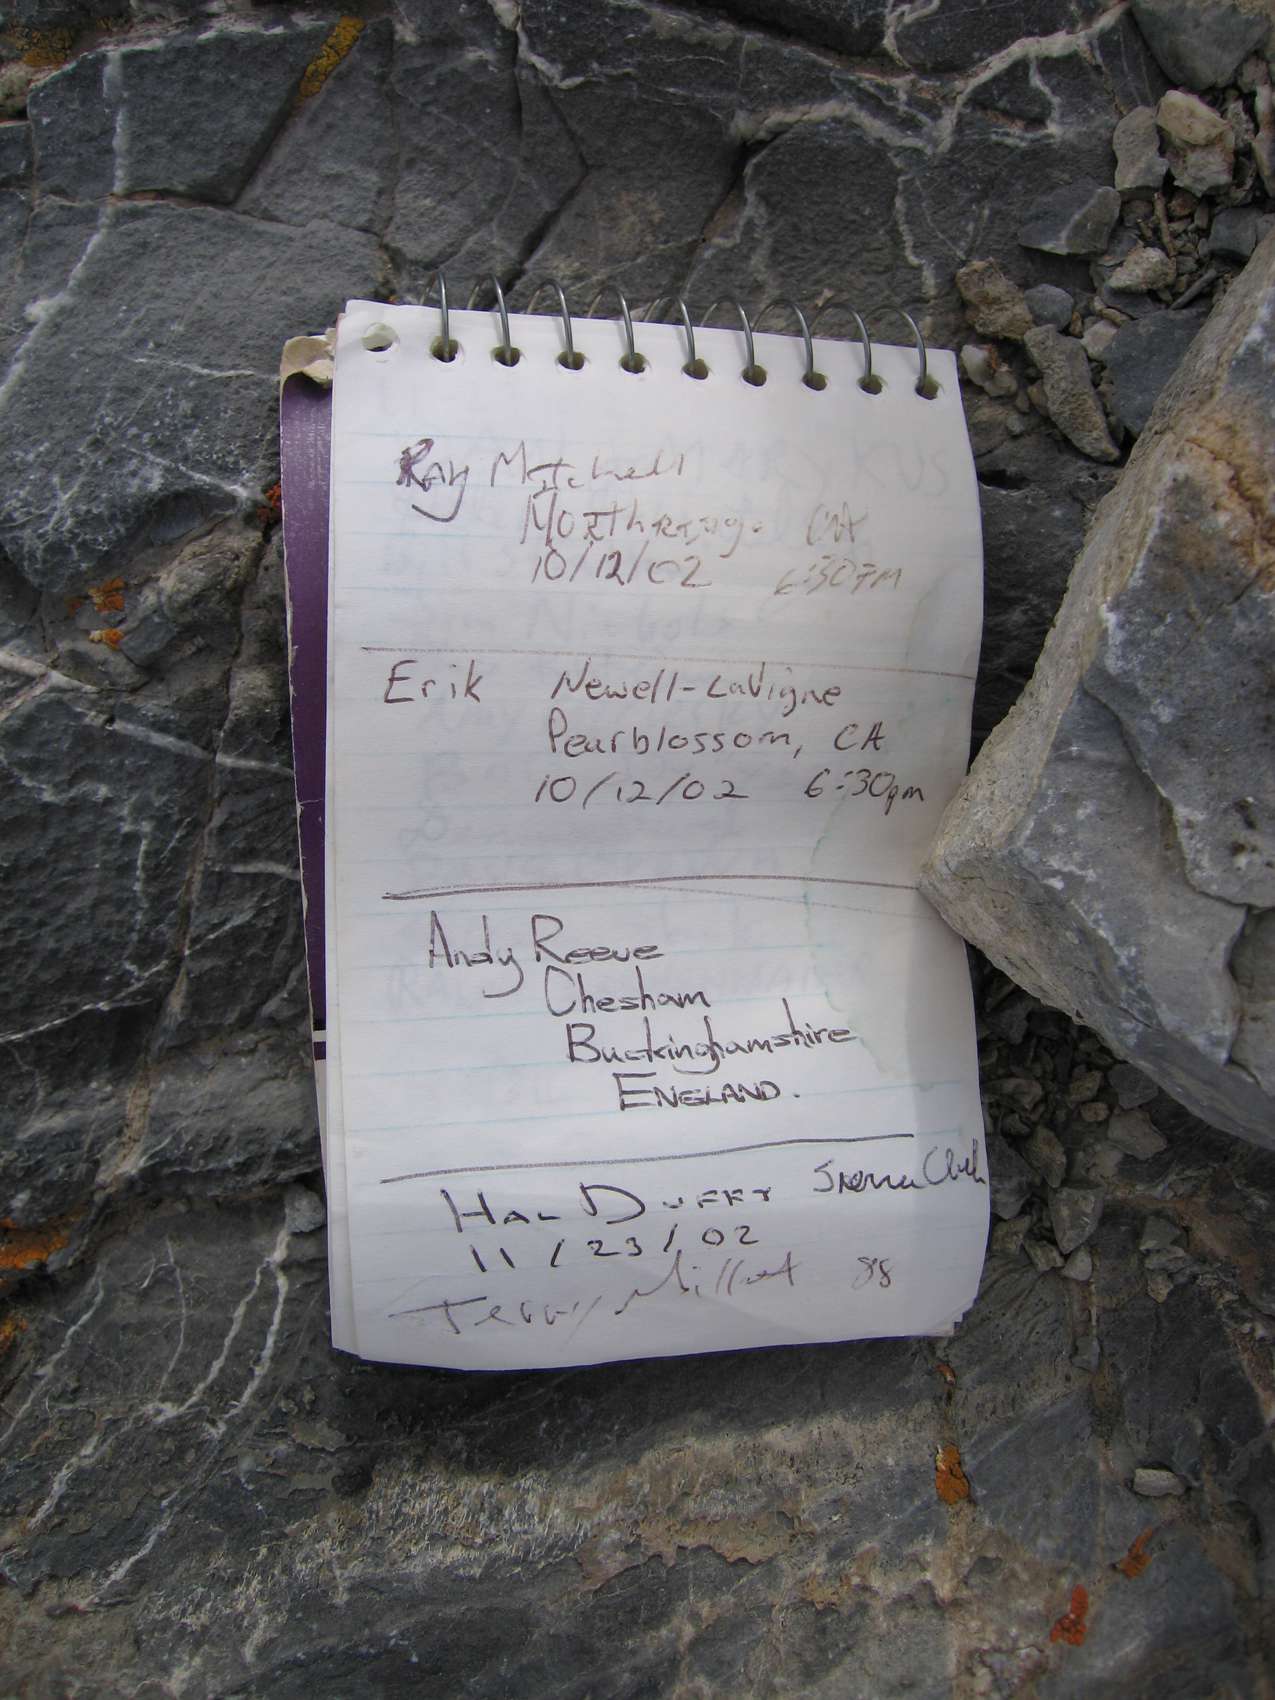 Ray Mitchell
Northridge CA
10/12/02 6:30PM
Erik Newell-LaVigne
Pearblossom, CA
10/12/02 6:30pm
Andy Reeve
Chesham
Buckinghamshire
ENGLAND.
HAL DUFFY Sierra Club
11/23/02
Terry